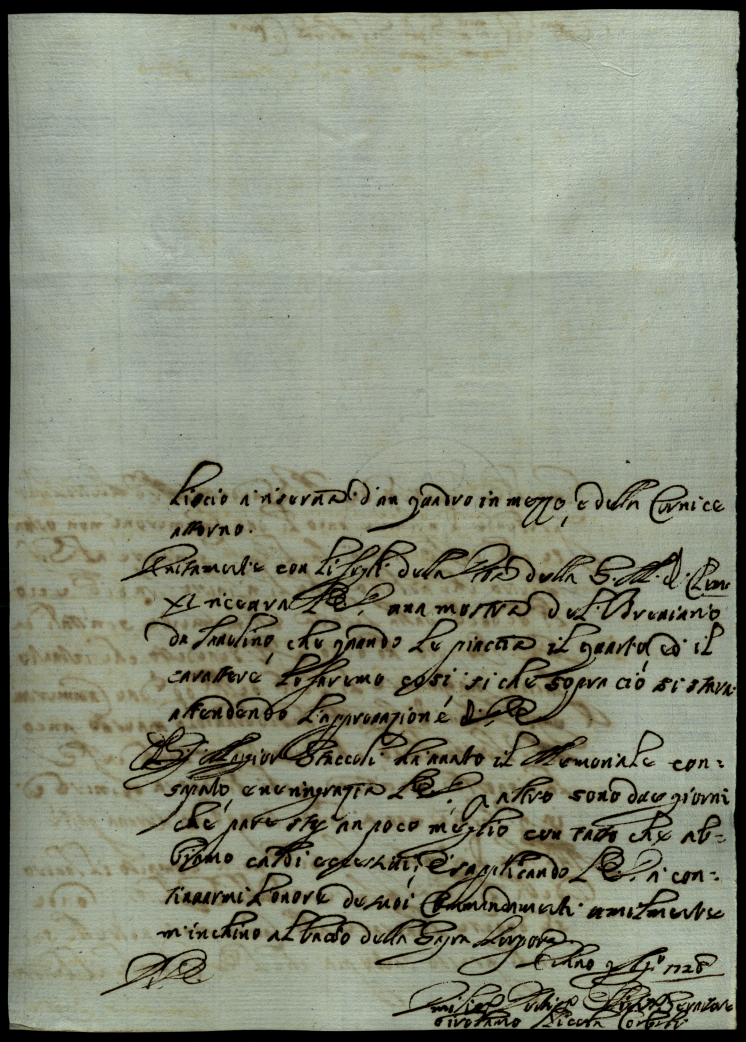 liscio a riserva d'un quadro in mezzo, e della Cornice
attorno.
Unitamente con li fogli della Vita della S. M. di Clem.
XI riceverà V.E. una mostra del Breviario
da Tavolino, che quando le piaccia il quarto, ed il
carattere lo faremo così, si che sopra ciò si starà
attendendo l'approvazione di V.E.
Il Sig. Maggior Staccoli ha avuto il Memoriale con=
segnato e ne ringrazia V.E. Per altro sono due giorni
che pare stia un poco meglio con tutto che ab=
biamo caldi eccessivi, e supplicando V.E. a con=
tinuarmi l'onore de suoi Commandamenti umilmente
m'inchino al bacio della Sagra Porpora
Urbino Ag.o 1728
V.E.
Umiliss. Servitore
Girolamo Corboli